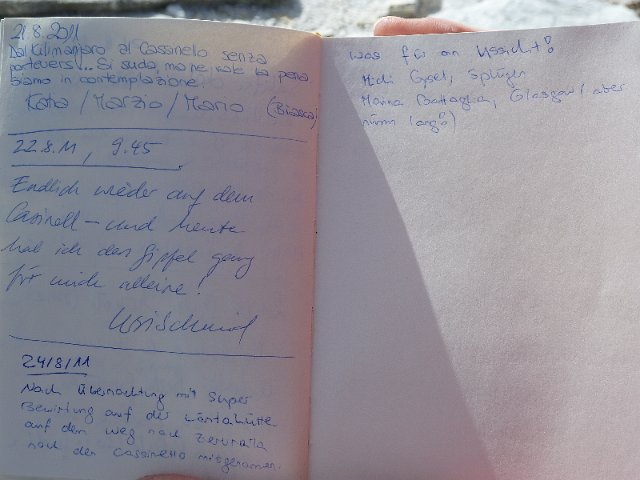 21.8.2011
Dal Kilimanjaro al Cassinello senza
porteurs... Si suda, ma ne vale la pena
Siamo in contemplazione.
Katia / Marzio / Mario (Biasca)
22.8.11, 9.45
Endlich wieder auf dem
Casinell – und heute
hab ich den Gipfel ganz
für mich alleine!
24/8/11
Nach Übernachtung mit Super
Bewirtung auf der Läntahütte
auf dem Weg nach Zervreila
noch den Cassinello mitgenommen.
Was für an Ussicht!
Heidi Gysel, Splügen
Hanna Battaglia, Glasgow (aber
nümm lang!)